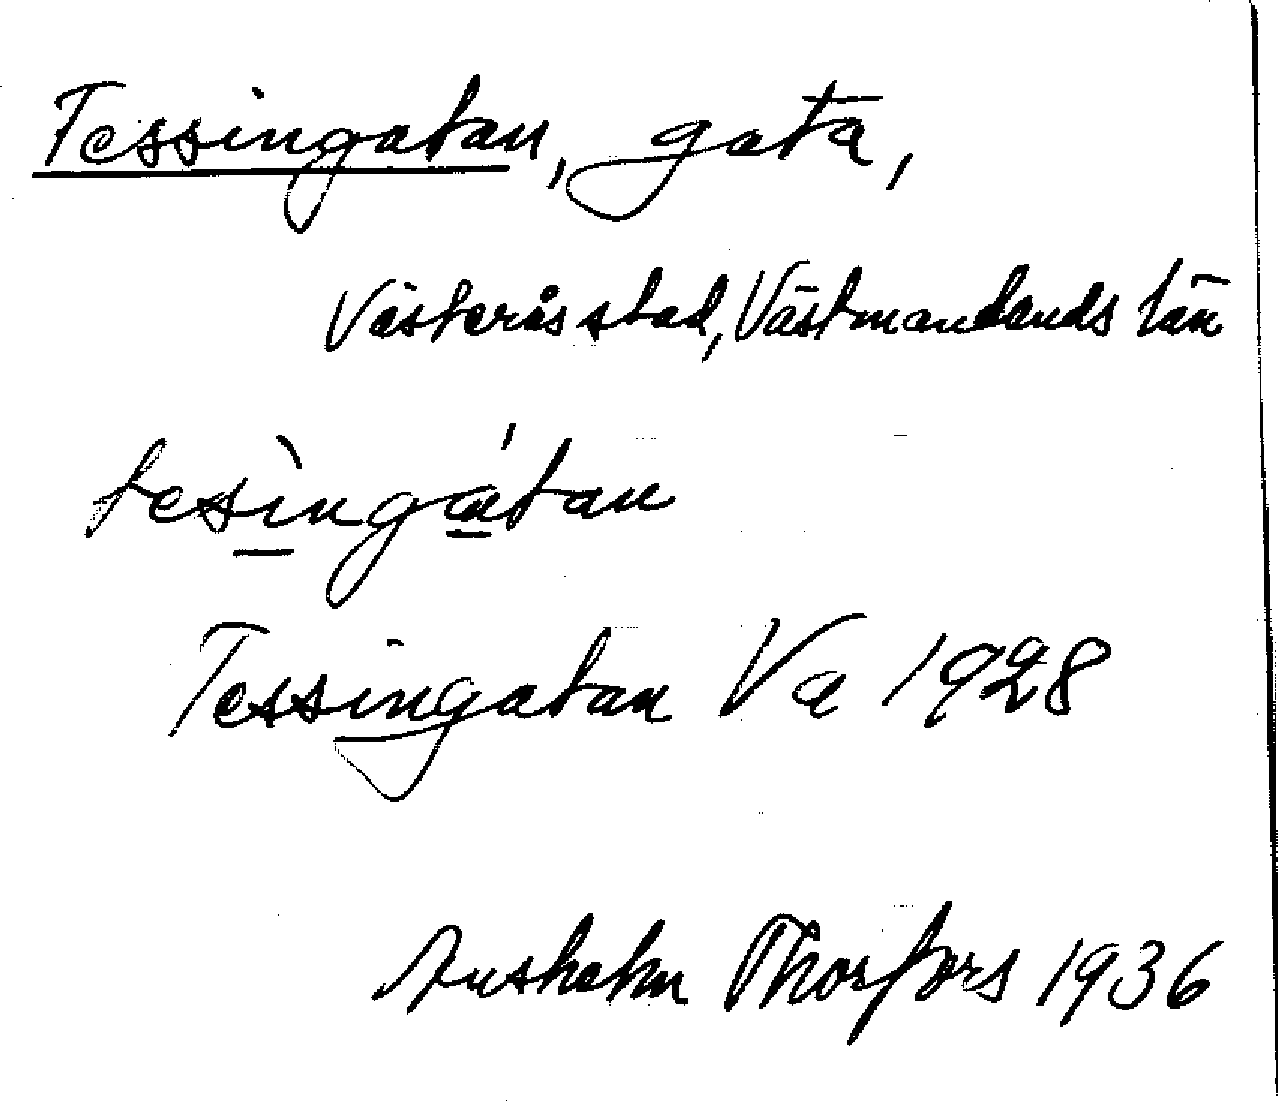 Tessingatan, gata,
Västerås stad, Västmanlands län
tesìngátan
Tessingatan Va 1928
Anshelm Thorfors 1936